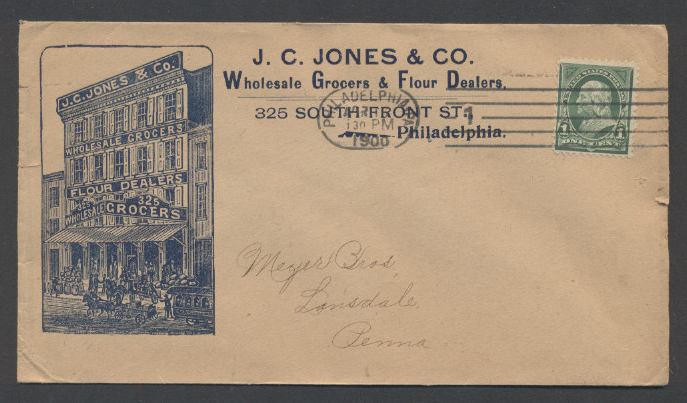 J. C. JONES & CO.
Wholesale Grocers & Flour Dealers,
325 SOUTH FRONT ST.,
Philadelphia.
PHILADELPHIA
130 PM
1900
1
1 1
ONE CENT
J. C. JONES & CO.
WHOLESALE GROCERS
FLOUR DEALERS
325 325
WHOLESALE GROCERS
Meyer Bros
Lansdale
Penna